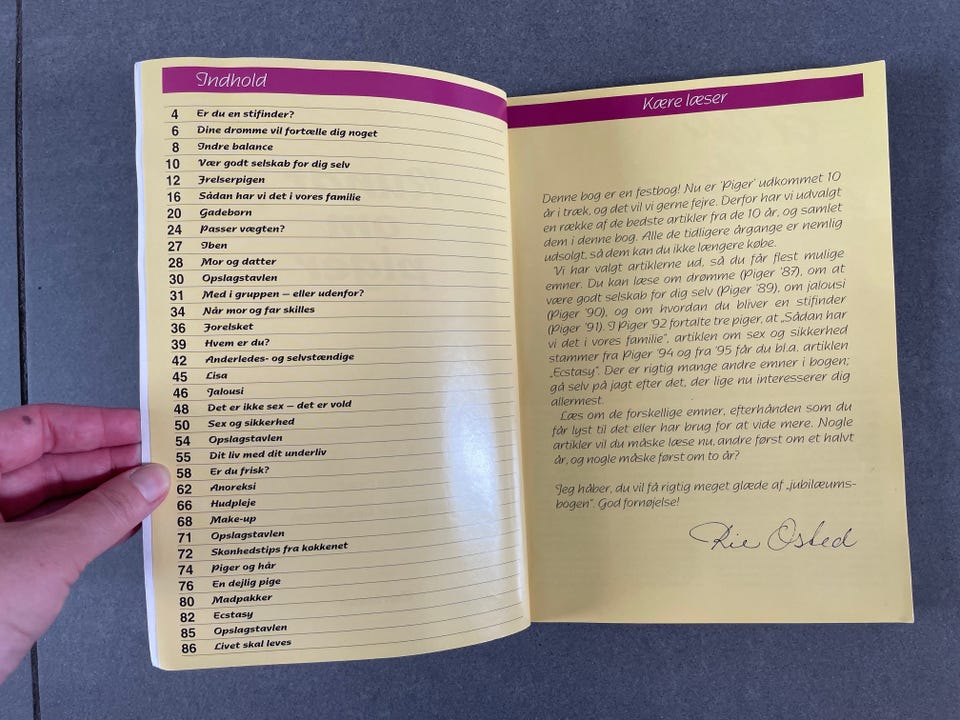 Indhold
4 Er du en stifinder?
6 Dine drømme vil fortælle dig noget
8 Indre balance
10 Vær godt selskab for dig selv
12 Frelserpigen
16 Sådan har vi det i vores familie
20 Gadebørn
24 Passer vægten?
27 Iben
28 Mor og datter
30 Opslagstavlen
31 Med i gruppen – eller udenfor?
34 Når mor og far skilles
36 Forelsket
39 Hvem er du?
42 Anderledes- og selvstændige
45 Lisa
46 Jalousi
48 Det er ikke sex – det er vold
50 Sex og sikkerhed
54 Opslagstavlen
55 Dit liv med dit underliv
58 Er du frisk?
62 Anoreksi
66 Hudpleje
68 Make-up
71 Opslagstavlen
72 Skønhedstips fra køkkenet
74 Piger og hår
76 En dejlig pige
80 Madpakker
82 Ecstasy
85 Opslagstavlen
86 Livet skal leves
Kære læser
Denne bog er en festbog! Nu er 'Piger' udkommet 10
år i træk, og det vil vi gerne fejre. Derfor har vi udvalgt
en række af de bedste artikler fra de 10 år, og samlet
dem i denne bog. Alle de tidligere årgange er nemlig
udsolgt, så dem kan du ikke længere købe.
Vi har valgt artiklerne ud, så du får flest mulige
emner. Du kan læse om drømme (Piger '87), om at
være godt selskab for dig selv (Piger '89), om jalousi
(Piger '90), og om hvordan du bliver en stifinder
(Piger '91). I Piger '92 fortalte tre piger, at „Sådan har
vi det i vores familie", artiklen om sex og sikkerhed
stammer fra Piger '94 og fra '95 får du bl.a. artiklen
„Ecstasy". Der er rigtig mange andre emner i bogen;
gå selv på jagt efter det, der lige nu interesserer dig
allermest.
Læs om de forskellige emner, efterhånden som du
får lyst til det eller har brug for at vide mere. Nogle
artikler vil du måske læse nu, andre først om et halvt
år, og nogle måske først om to år?
Jeg håber, du vil få rigtig meget glæde af „jubilæums-
bogen". God fornøjelse!
Rie Osted